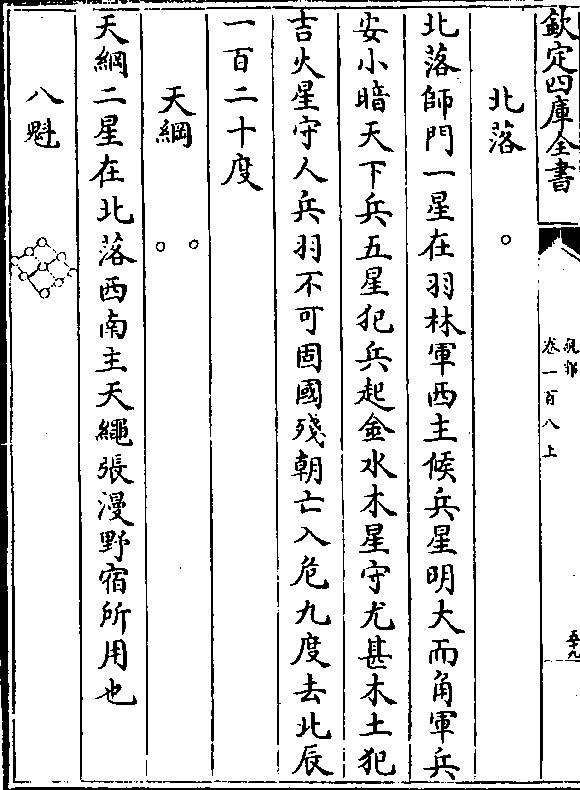 欽定四庫全書
說郛
卷一百八上
五十九
北落
北落師門一星在羽林軍西主候兵星明大而角軍兵
安小暗天下兵五星犯兵起金水木星守尤甚木土犯
吉火星守人兵羽不可固國殘朝亡入危九度去北辰
一百二十度
天綱
天綱二星在北落西南主天繩張漫野宿所用也
八魁